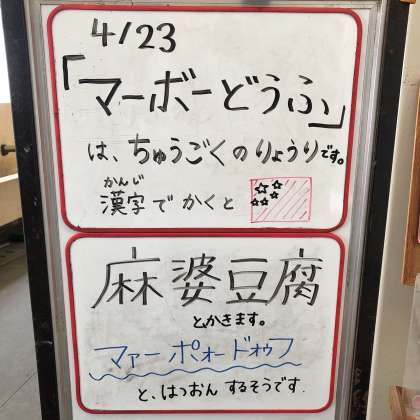 4/23
「マーボーどうふ」
は、ちゅうごくのりょうりです。
かんじ
漢字でかくと
麻婆豆腐
とかきます。
マァーポォードォゥフ
と、はつおんするそうです.